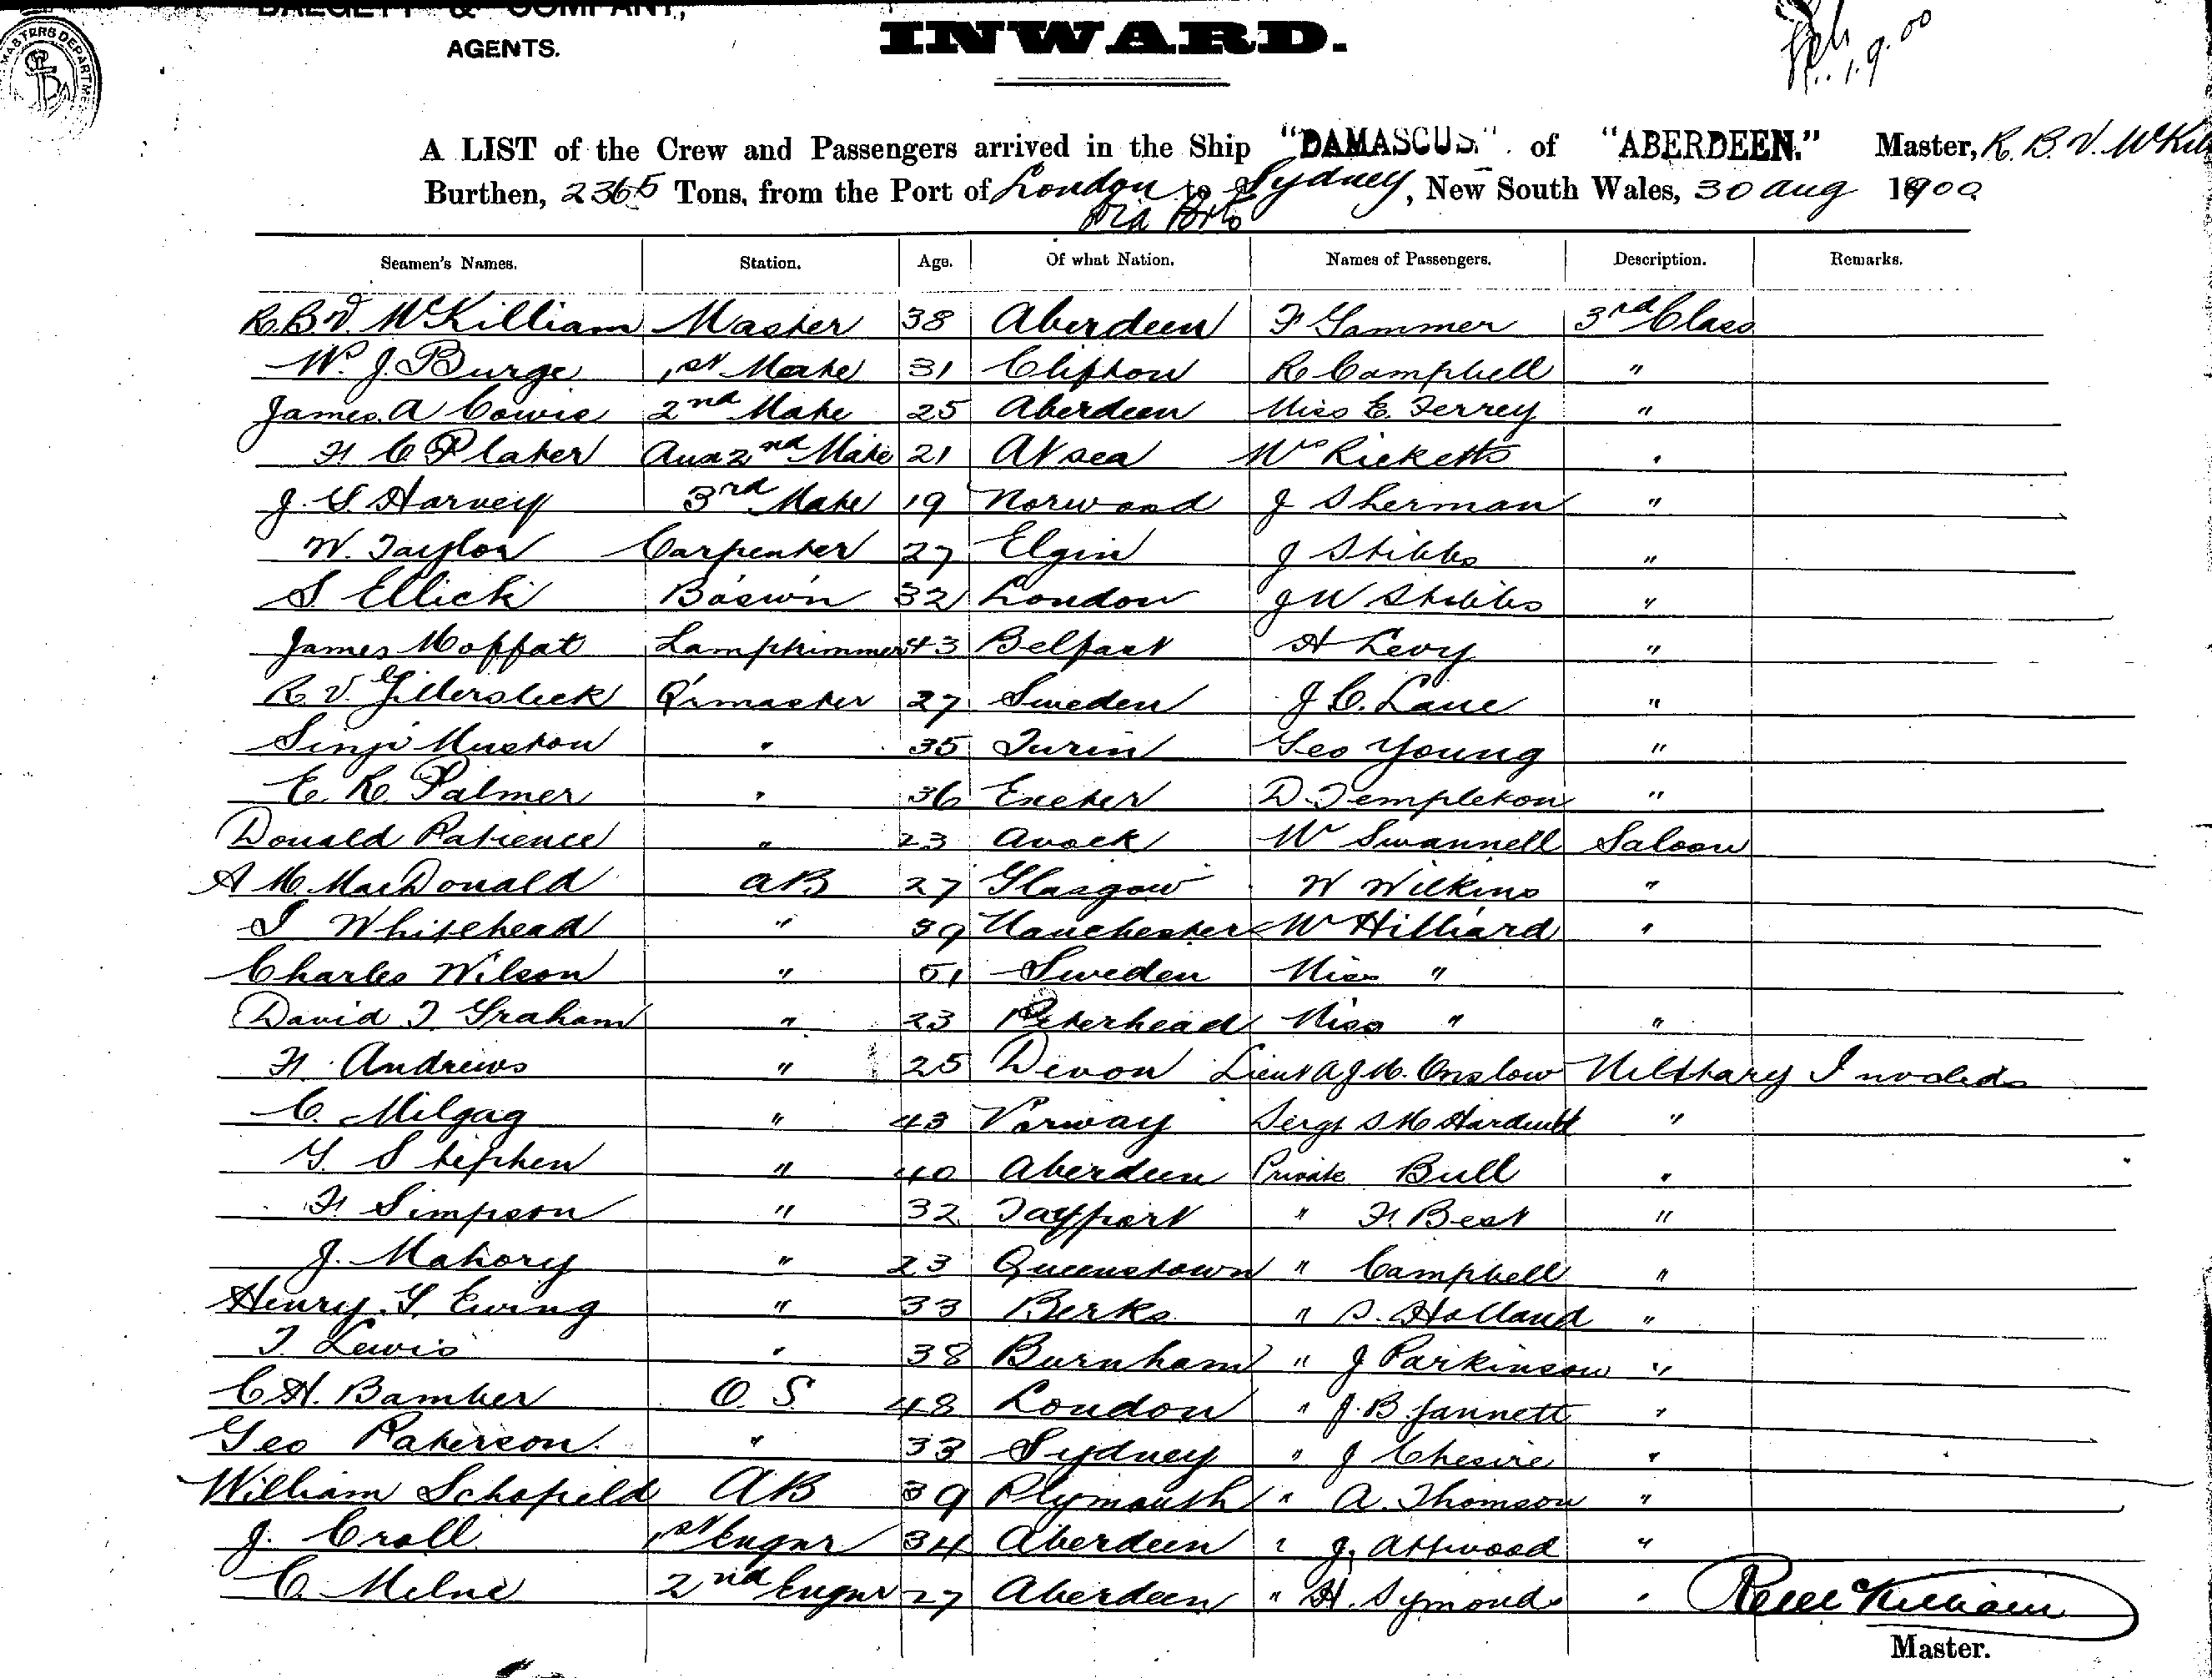 DALGETY & COMPANY,
AGENTS.
INWARD.
A LIST of the Crew and Passengers arrived in the Ship "DAMASCUS" of "ABERDEEN." Master, R. B. V. McKil
Burthen, 2365 Tons, from the Port of London to Sydney, New South Wales, 30 Aug 1900
via
Seamen's Names. Station. Age. Of what Nation. Names of Passengers. Description. Remarks.
R.B.V. McKilliam Master 38 Aberdeen F Gammer 3rd Class
W. J. Burge 1st Mate 31 Clifton R Campbell "
James A Cowie 2nd Mate 25 Aberdeen Miss E. Ferrey "
H C Plater 2nd Mate 21 At sea Ricketts "
J. G. Harvey 3rd Mate 19 Norwood J Sherman "
W. Taylor Carpenter 27 Elgin J Stibbs "
S. Ellick Bosw'n 32 London J W Stibbs "
James Moffat Lamptrimmer 43 Belfast H Levy "
R. V. Q'rmaster 27 Sweden J. C. Lane "
" 35 Turin Geo Young "
E. R. Palmer " 36 Exeter D. Templeton "
Donald Patience " 23 Avock Mr Swannell Saloon
A M. MacDonald AB 27 Glasgow W Wilkins "
Whitehead " 39 Manchester Mr Hilliard "
Charles Wilson " 51 Sweden Miss "
David T. Graham " 23 Peterhead Miss " "
H. Andrews " 25 Devon Lieut A J M. Onslow Military Invalids
C. Milgag " 43 Norway Sergt "
G. Stephen " 40 Aberdeen Private Bull "
H Simpson " 32 Tayport " H. Best "
J. Mahony " 23 Queenstown " Campbell "
Henry G. Ewing " 33 Berks " S. Holland "
T. Lewis " 38 Burnham " J Parkinson "
C H. Bamber O. S. 48 London " J. B. Jannett "
Geo Paterson " 33 Sydney " J Chesire "
William Schofield AB 39 Plymouth " A. Thomson "
J. Croll 1st Engnr 34 Aberdeen " J. Attwood "
C. Milne 2nd Engnr 27 Aberdeen " H. Symonds "
Master.